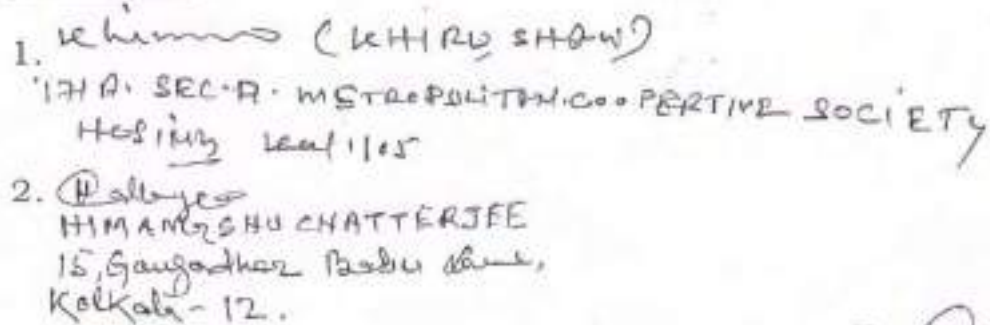 1. (KHIRU SHAW)
171A. SEC.A. METROPOLITAN.COOPERTIVE SOCIETY
Hosing Kol/105
2.
HIMANGSHU CHATTERJEE
15, Gangadhar Babu Lane,
Kolkata - 12.